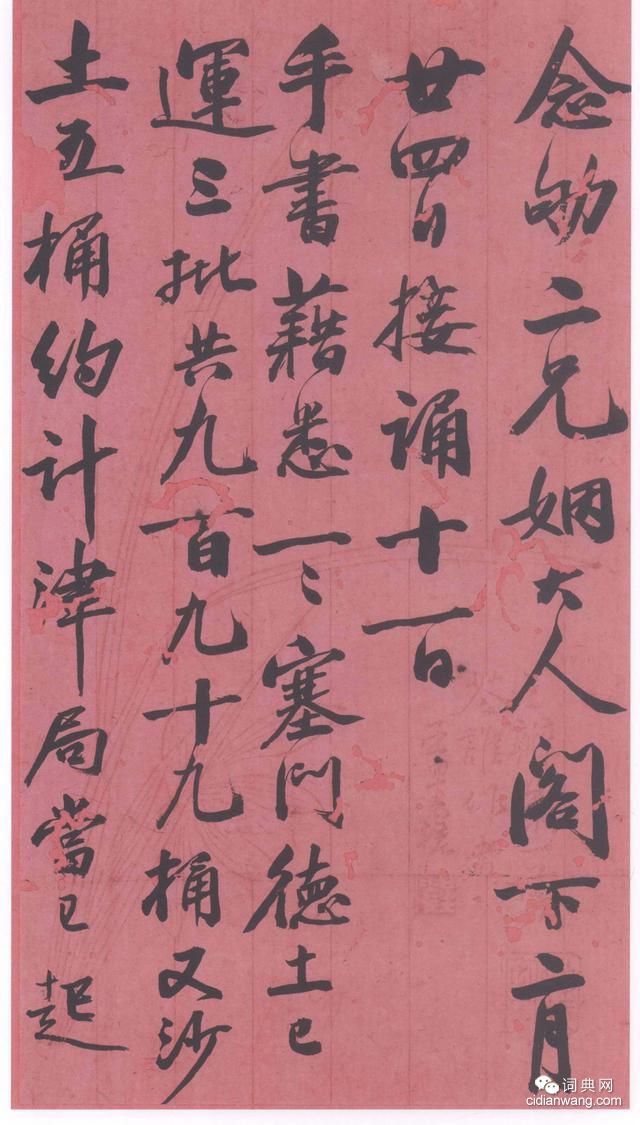 念劬二兄姻大人阁下二月
廿四日接诵十一日
手書藉悉一〻塞门德土已
運三批共九百九十九桶又沙
土五桶约计津局當已起
词典网
cidianwang.com